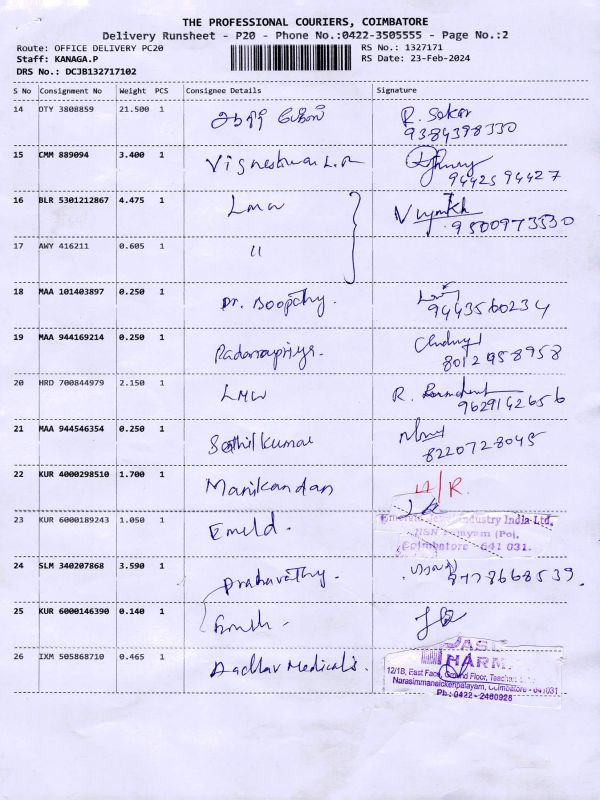 THE PROFESSIONAL COURIERS, COIMBATORE
Delivery Runsheet - P20 - Phone No.:0422-3505555 - Page No.:2
Route: OFFICE DELIVERY PC20 RS No.: 1327171
Staff: KANAGA.P RS Date: 23-Feb-2024
DRS No.: DCJB132717102
S No Consignment No Weight PCS Consignee Details Signature
14 DTY 3808859 21.500 1 R. Sekar
9384398330
15 CMM 889094 3.400 1 Vigneshwar L.R
94425 94427
16 BLR 5301212867 4.475 1 LMW
9500973530
17 AWY 416211 0.605 1 "
18 MAA 101403897 0.250 1 Dr. Boopathy.
9443560234
19 MAA 944169214 0.250 1
8012958958
20 HRD 700844979 2.150 1 LMW R.
9629142656
21 MAA 944546354 0.250 1 Senthil kumar
8220728045
22 KUR 4000298510 1.700 1 Manikandan
23 KUR 6000189243 1.050 1 Emeld. Industry India Ltd,
Coimbatore - 641 031.
24 SLM 340207868 3.590 1 Prabavathy. 8778668539.
25 KUR 6000146390 0.140 1
26 IXM 505868710 0.465 1 Aadhav Medicals.
12/1B, East Face, Ground Floor,
Narasimmanaickenpalayam, Coimbatore - 641031
Ph : 0422 - 2460926